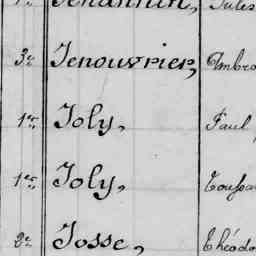 Jehannin, Jules
3e Jenouvrier, Ambro
1er Joly, Paul
1er Joly, Toussa
2e Josse, Théodo